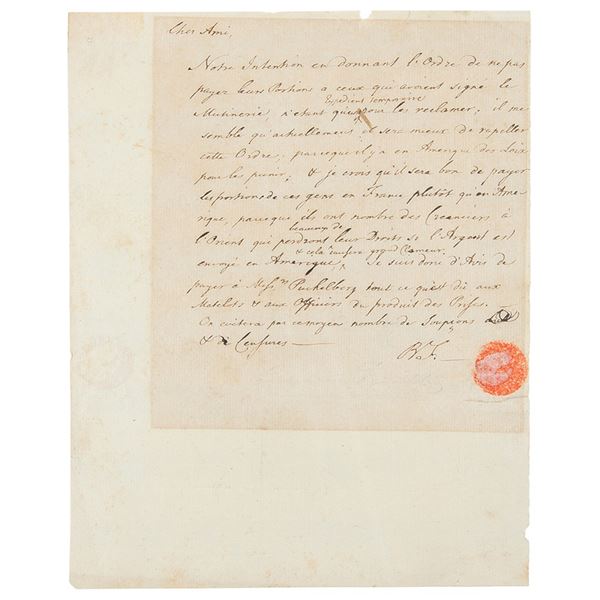 Cher Ami,
Notre Intention en donnant l'Ordre de ne pas
payer leurs Portions a ceux qui avoient signé le
Expedient temporaire
Mutinerie, n'etant que pour les reclamer; il me
semble qu'actuellement il sera mieux de rapeller
cette Ordre, parceque il y a en Amerique des Loix
pour les punir; & je crois qu'il sera bon de payer
les portions de ces gens en France plutôt qu'en Ame-
rique, parceque ils ont nombre des Creanciers à
beaucoup de
l'Orient qui perdront leur Droits si l'Argent est
& cela causera grand Clameur.
envoyé en Amerique, Je suis donc d'Avis de
payer à Mess.rs Puchelberg tout ce qu'est dû aux
Matelots & aux Officiers du produit des Prises.
On evitera par ce moyen nombre de Soupçons
& de Censures —
B. F.